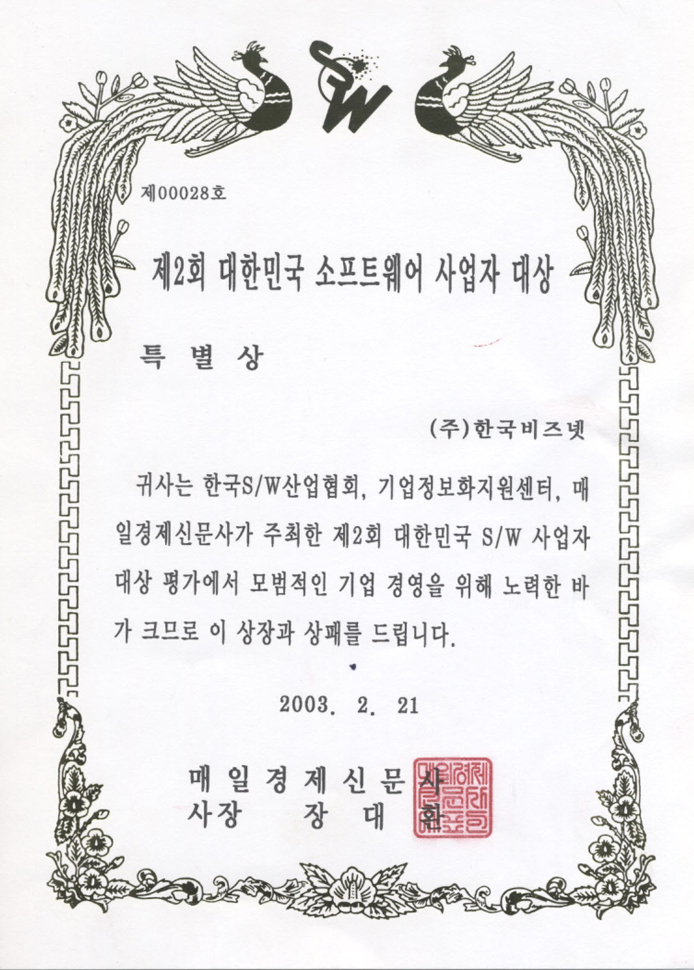 SW
제00028호
제2회 대한민국 소프트웨어 사업자 대상
특 별 상
(주)한국비즈넷
귀사는 한국S/W산업협회, 기업정보화지원센터, 매
일경제신문사가 주최한 제2회 대한민국 S/W 사업자
대상 평가에서 모범적인 기업 경영을 위해 노력한 바
가 크므로 이 상장과 상패를 드립니다.
2003. 2. 21
매 일 경 제 신 문 사
사장 장 대 환